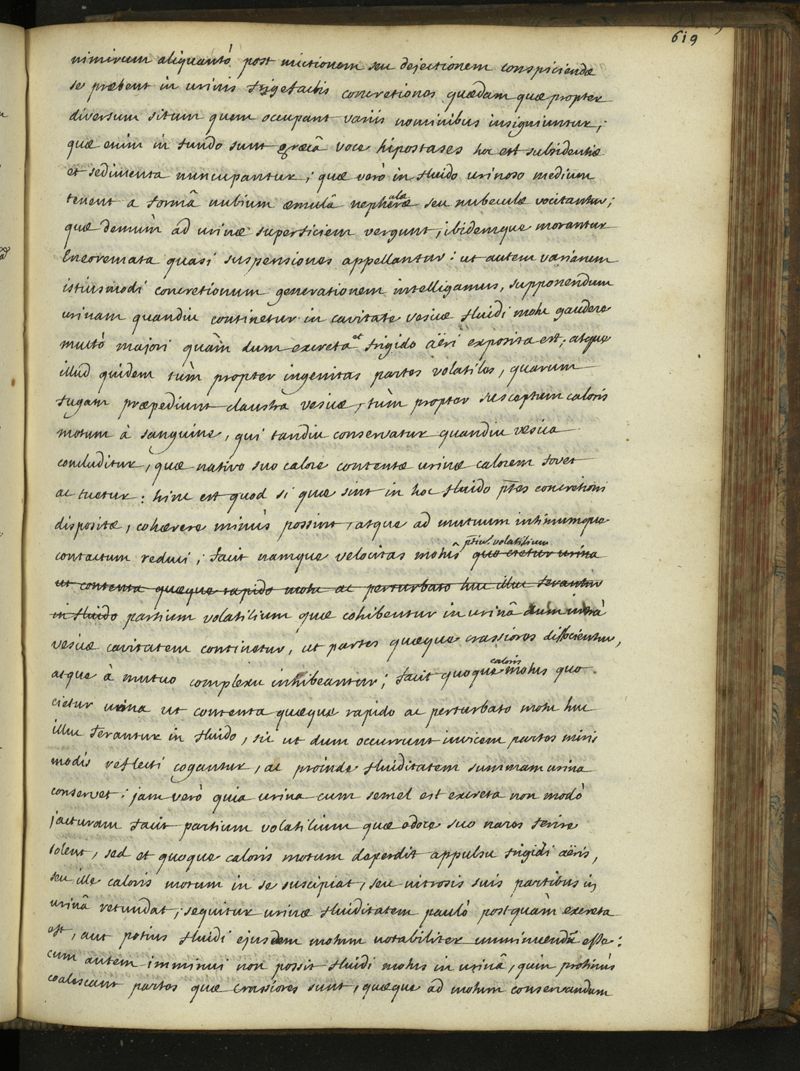 619
nimirum aliquantò post mictionem seu dejectionem conspiciendæ
se præbent in urinis frigefactis concretiones quædam quæ propter
diversum situm quem occupant variis nominibus insigniuntur;
quæ enim in fundo sunt græcâ voce hipostases hoc est subsidentiæ
et sedimenta nuncupantur; quæ verò in fluido urinoso medium
tenent a formâ nubium æmulâ nephelæ seu nubeculæ vocitantur;
quæ demùm ad urinæ superficiem vergunt, ibidemque morantur
Eneoremata quasi suspensiones appellantur: ut autem variarum
istiusmodi concretionum generationem intelligamus, supponendum
urinam quandiu continetur in cavitate vesicæ fluidi motu gaudere
multò majori quàm dum excreta et frigido aëri exposita est. atque
illud quidem tùm propter ingenitas partes volatiles, quarum
fugam præpediunt claustra vesicæ, tùm propter susceptum caloris
motum à sanguine, qui tandiu conservatur quandiu vesica
concluditur, quæ nativo suo calore contentæ urinæ calorem fovet
ac tuetur: hinc est quod si quæ sint in hoc fluido ptes concretioni
dispositæ, cohærere minùs possint, atque ad mutuum intimumque
contactum reduci; facit namque velocitas motûs ptiu. volatilium quo cietur urina
ut contenta quæque rapido motu ac perturbato huc illuc ferantur
in fluido partium volatilium quæ cohibentur in urinâ dum intrà
vesicæ cavitatem continetur, ut partes quæque crassiores dissocientur,
atque à mutuo complexu inhibeantur; facit quoque caloris motus quo
cietur urina ut contenta quæque rapido ac perturbato motu huc
illuc ferantur in fluido, sic ut dum occurrunt invicem partes miris
modis reflecti cogantur, ac proinde fluiditatem summam urina
conservet: jam verò quia urina cum semel est excreta non modò
jacturam facit partium volatilium quæ odore suo nares ferire
solent, sed et quoque caloris motum deperdit appulsu frigidi aëris,
seu ille caloris motum in se suscipiat, seu nitrosis suis partibus in
urinâ retundat; sequitur urinæ fluiditatem paulò postquàm excreta
est, aut potius fluidi ejusdem motum notabiliter imminuendâ esse:
cum autem imminui non possit fluidi motus in urinâ, quin protinùs
coalescant partes quæ crassiores sunt, quæque ad motum conservandum